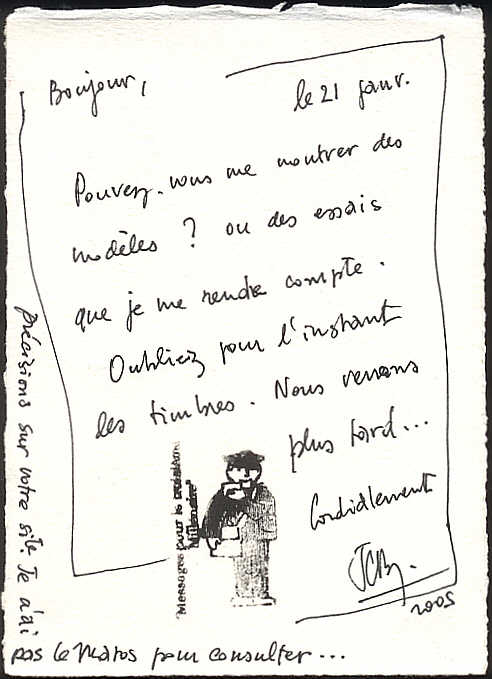 Bonjour,
le 21 janv.
Pouvez-vous me montrer des
modèles ? ou des essais
que je me rende compte.
Oubliez pour l'instant
les timbres. Nous verrons
plus tard...
Cordialement
JCB.
2005
"Messages pour le troisième
Millénaire"
précisions sur votre site. Je n'ai
pas le matos pour consulter...